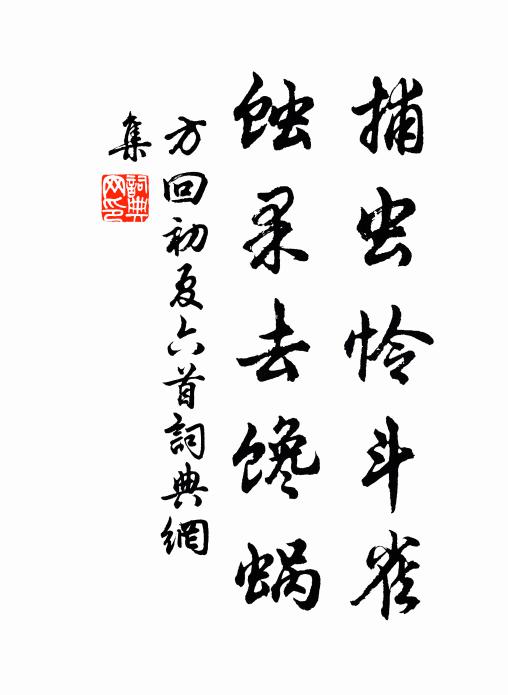 捕虫怜斗雀
蚀果去馋蜗
方回初夏六首詞典網
集
詞典网印